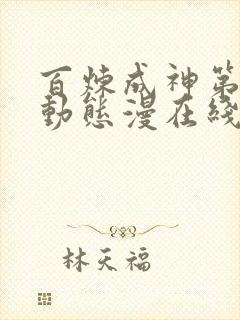 百煉成神第
動態漫在綫
林天福